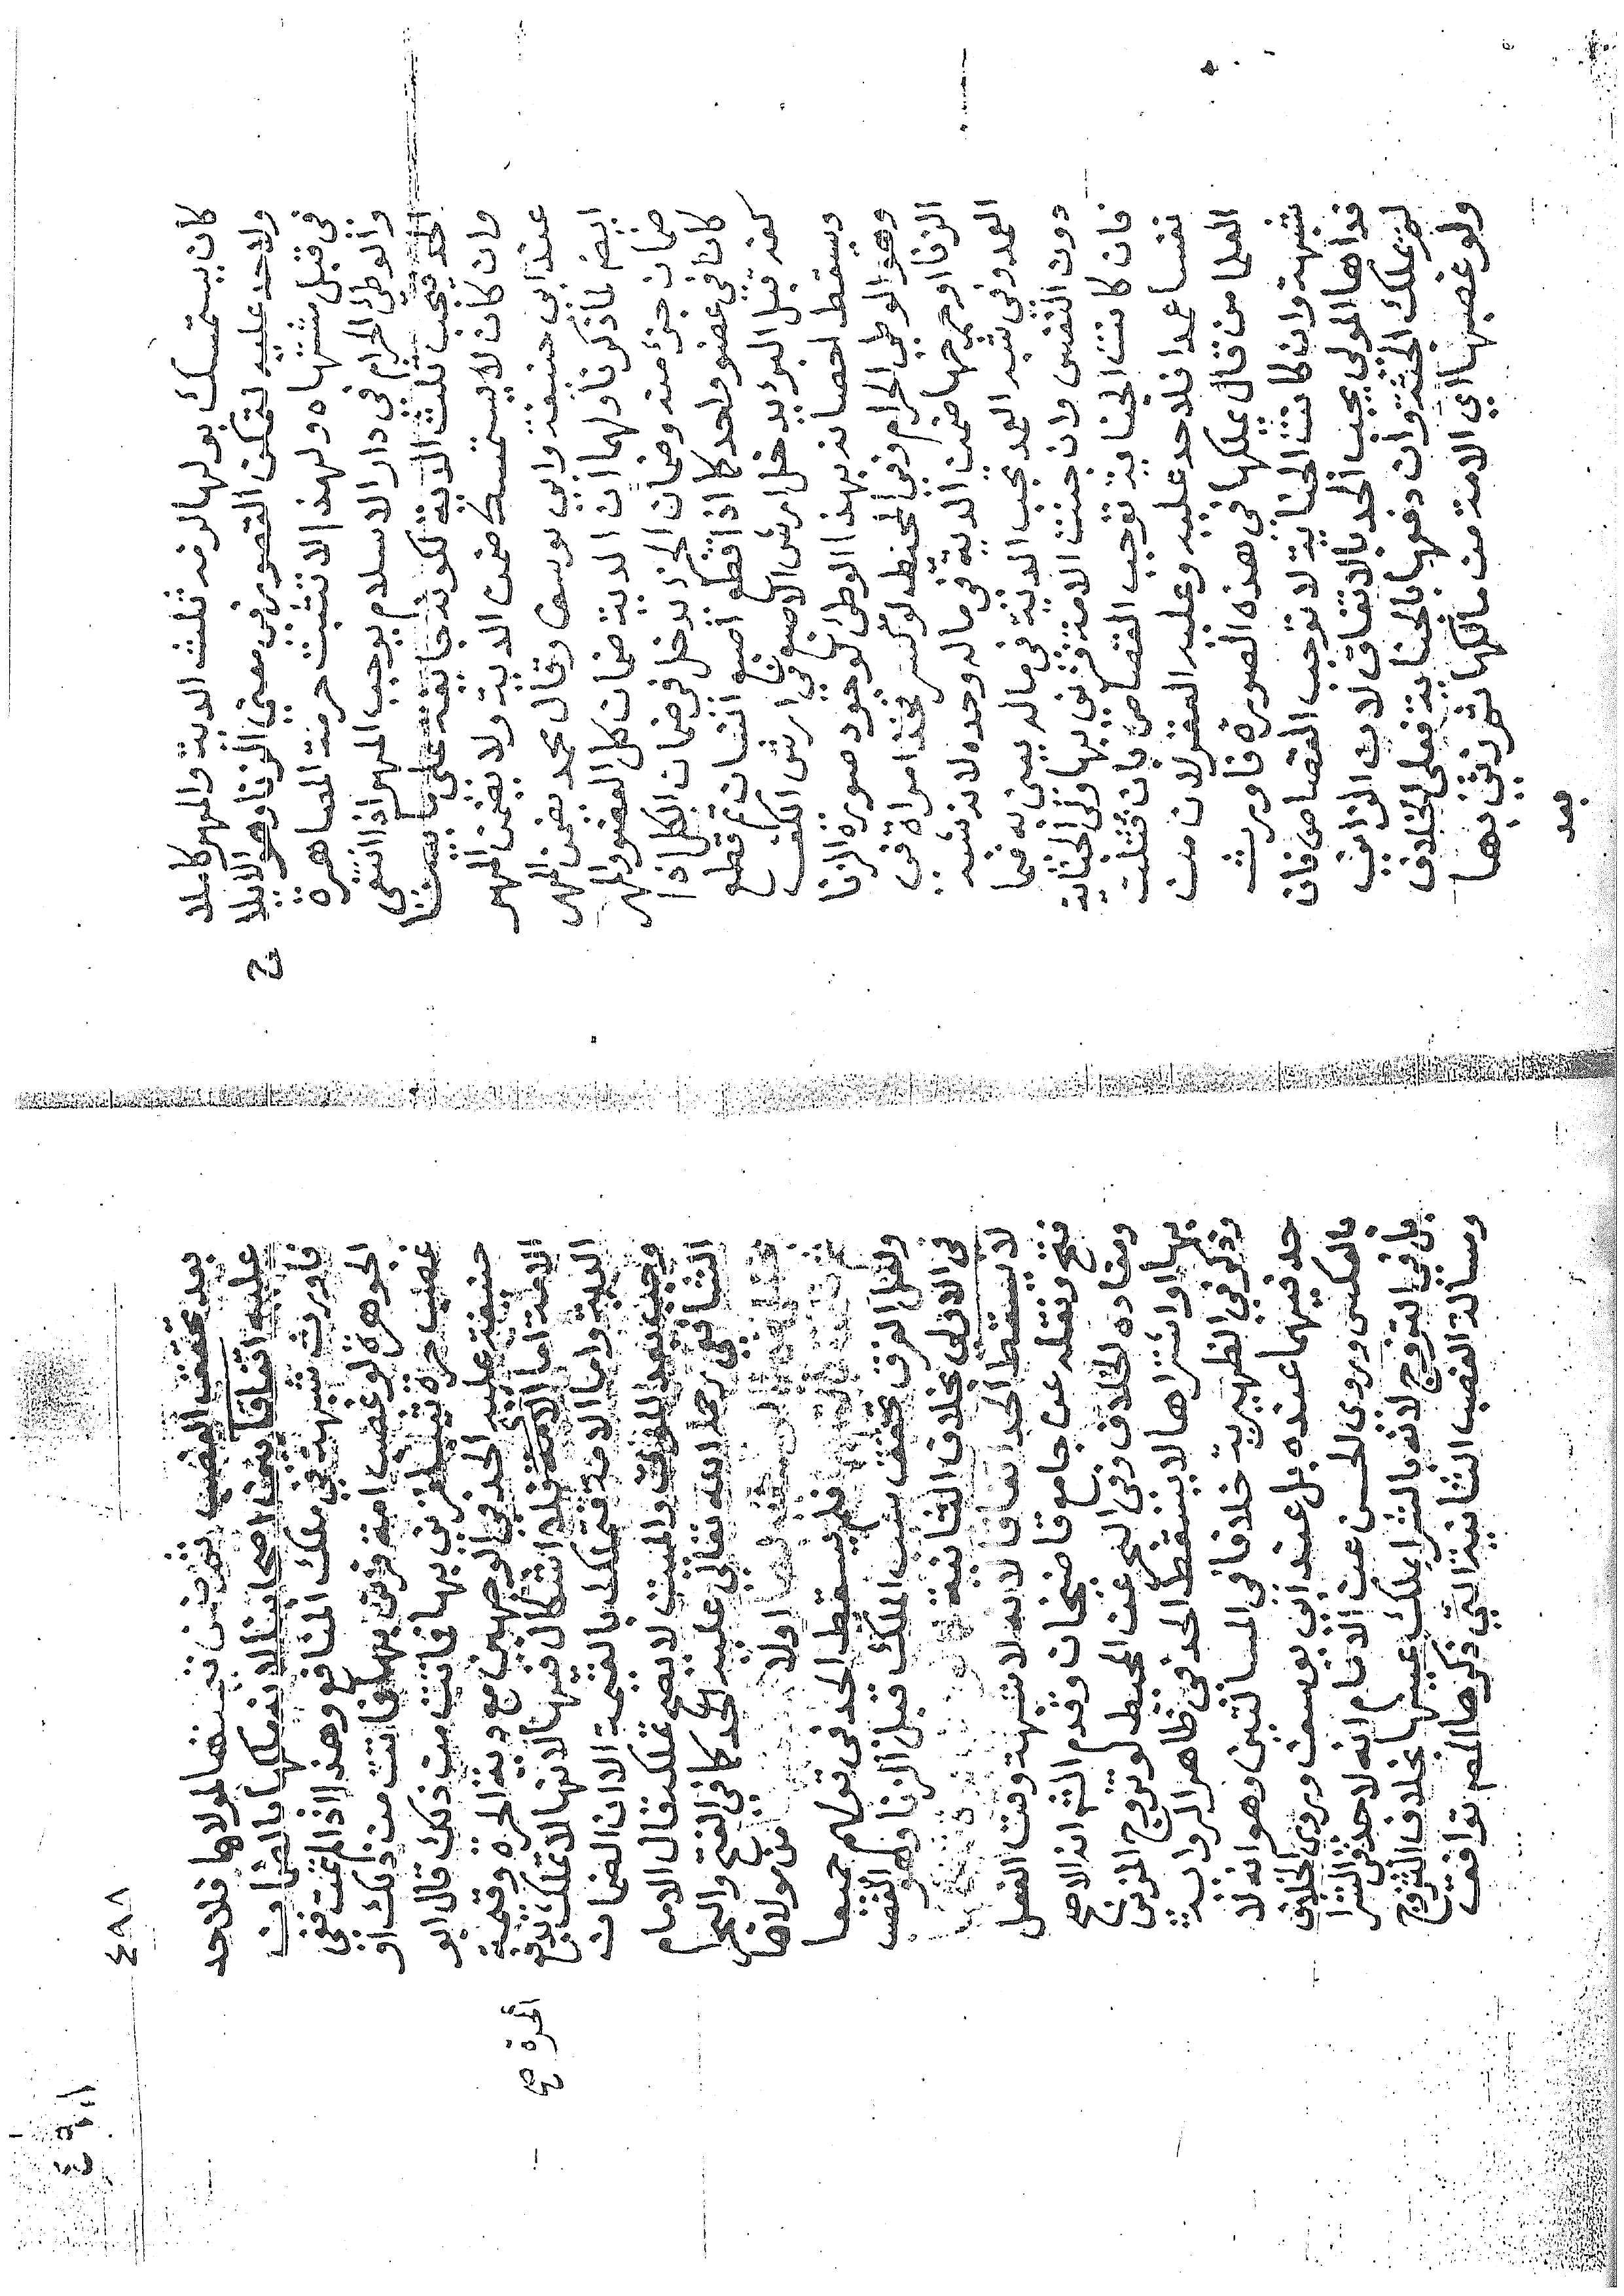 كان يستمسك بولها لزمه ثلث الدية والمهر كاملا
ولا حد عليه لتمكن القصور في معنى الزنا وهو الايلاج
في قبل مشتهاه ولهذا لا تثبت حرمة المصاهرة
والوطئ الحرام في دار الاسلام يوجب المهر اذا انتفى
الحد فيجب ثلث الدية لكونه جائفة على ما بينا
وان كان لا يستمسك ضمن الدية ولا يضمن المهر
عند ابي حنيفة وابي يوسف وقال محمد يضمن المهر
ايضا لما ذكرنا ولهما ان الدية ضمان كل العضو والمهر
ضمان جزء منه وضمان الجزء يدخل في ضمان الكل اذا
كانا في عضو واحد كما اذا قطع اصبع انسان ثم قطع
كفه قبل البرء يدخل ارش الاصبع في ارش الكف
ويسقط احصانه بهذا الوطئ لوجود صورة الزنا
وهو الوطئ الحرام وفي المحيط لو كسر فخذ امراة في
الزنا او جرحها ضمن الدية في ماله وحده لانه شبه
العمد وفي شبه العمد يجب الدية في ماله يعني به فيما
دون النفس وان جنت الامة فزنى بها ولي الجناية
فان كانت الجناية توجب القصاص بان قتلت
نفسا عمدا فلا حد عليه وعليه العقر لان من
العلما من قال يملكها في هذه الصورة فاورث
شبهة وان كانت الجناية لا توجب القصاص فان
فداها المولى يجب الحد بالاتفاق لان الزاني
لم يملك الجثة وان دفعها بالجناية فعلى الخلاف
ولو غصبها اي الامة من مالكها ثم زنى بها
بعد
٤٩٨
بعد تحقق الغصب ثم ضمن قيمتها لمولاها فلا حد
عليه اتفاقا بين اصحابنا لانه ملكها بالضمان
فاورث شبهة في ملك المنافع وهذا اذا لم تمت ففي
الجوهرة لو غصب امة فزنى بها فماتت من ذلك او
غصب حرة ثيبا فزنى بها فماتت من ذلك قال ابو
حنيفة عليه الحد في الوجهين مع دية الحرة وقيمة
الامة اما الحرة فلا اشكال فيها لانها لا تملك بدفع
الحرة صح
الدية واما الامة فتملك بالقيمة الا ان الضمان
وجب بعد الموت والميت لا يصح تملكه قال الامام
الشافعي رحمه الله تعالى عليه الحد كما في الفتح والبحر
فلم يسقط الحد في قولهم جميعا
ولعل الفرق تحقق سبب الملك قبل الزنا وهو الغصب
في الاولى بخلاف الثانية
لا يسقط الحد اتفاقا لانه لا شبهة وقت الفعل
فتح ونقله عن جامع قاضيخان وقدم الشر انه الاصح
ومفاده الخلاف وفي البحر عن المحيط لو تزوج المزني
بها او اشتراها لا يسقط الحد في ظاهر الرواية
وذكر في الظهيرية خلافا في المسالتين وهو انه لا
حد فيهما عنده بل عند ابي يوسف وروي الخلاف
بالعكس وروى الحسن عن الامام انه لا حد في الشرا
بل في التزوج لانه بالشرا يملك عينها بخلاف التزوج
ومسالة الغصب الثانية التي ذكرها المص توافقت